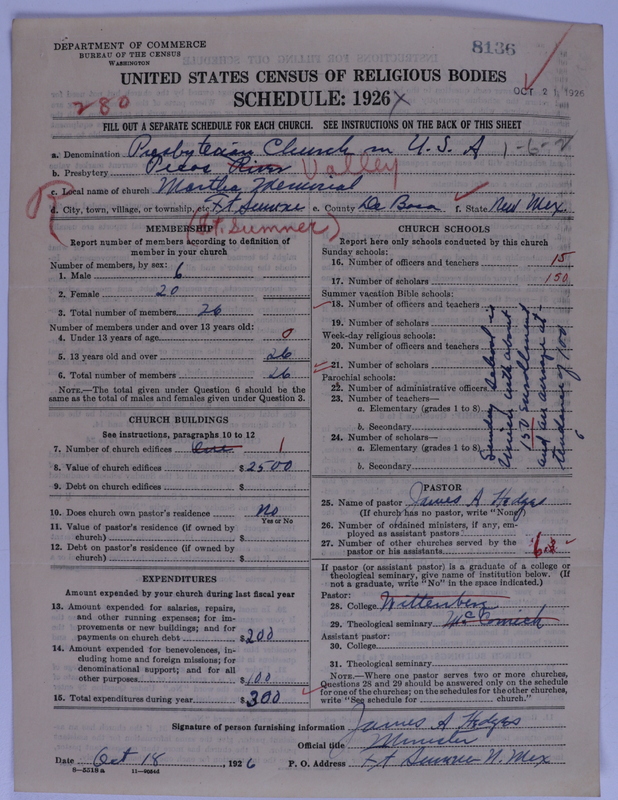 DEPARTMENT OF COMMERCE
BUREAU OF THE CENSUS
WASHINGTON
8136
UNITED STATES CENSUS OF RELIGIOUS BODIES
SCHEDULE: 1926
OCT 21 1926
280
FILL OUT A SEPARATE SCHEDULE FOR EACH CHURCH. SEE INSTRUCTIONS ON THE BACK OF THIS SHEET
a. Denomination Presbyterian Church in U.S.A 1-6-2
b. Presbytery Pecos River Valley
c. Local name of church Martha Memorial
d. City, town, village, or township, etc Ft Sumner e. County De Baca f. State New Mex.
(Ft. Sumner)
MEMBERSHIP
Report number of members according to definition of
member in your church
Number of members, by sex:
1. Male 6
2. Female 20
3. Total number of members 26
Number of members under and over 13 years old:
4. Under 13 years of age 0
5. 13 years old and over 26
6. Total number of members 26
NOTE.—The total given under Question 6 should be the
same as the total of males and females given under Question 3.
CHURCH BUILDINGS
See instructions, paragraphs 10 to 12
7. Number of church edifices One 1
8. Value of church edifices $2500
9. Debt on church edifices $
10. Does church own pastor's residence No
Yes or No
11. Value of pastor's residence (if owned by
church) $
12. Debt on pastor's residence (if owned by
church) $
EXPENDITURES
Amount expended by your church during last fiscal year
13. Amount expended for salaries, repairs,
and other running expenses; for im-
provements or new buildings; and for
payments on church debt $200
14. Amount expended for benevolences, in-
cluding home and foreign missions; for
denominational support; and for all
other purposes $100
15. Total expenditures during year $300
CHURCH SCHOOLS
Report here only schools conducted by this church
Sunday schools:
16. Number of officers and teachers 15
17. Number of scholars 150
Summer vacation Bible schools:
18. Number of officers and teachers
19. Number of scholars
Week-day religious schools:
20. Number of officers and teachers
21. Number of scholars
Parochial schools:
22. Number of administrative officers
23. Number of teachers—
a. Elementary (grades 1 to 8)
b. Secondary
24. Number of scholars—
a. Elementary (grades 1 to 8)
b. Secondary
Sunday School is
Union with about
150 enrollment
and an average at-
tendance of 100
PASTOR
25. Name of pastor James A Hedges
(If church has no pastor, write "None")
26. Number of ordained ministers, if any, em-
ployed as assistant pastors
27. Number of other churches served by the
pastor or his assistants
If pastor (or assistant pastor) is a graduate of a college or
theological seminary, give name of institution below. (If
not a graduate, write "No" in the space indicated.)
Pastor:
28. College Wittenberg
29. Theological seminary McCormick
Assistant pastor:
30. College
31. Theological seminary
NOTE.—Where one pastor serves two or more churches,
Questions 28 and 29 should be answered only on the schedule
for one of the churches; on the schedules for the other churches,
write "See schedule for church."
Signature of person furnishing information James A Hedges
Official title Minister
Date Oct 18, 1926 P. O. Address Ft Sumner N. Mex
8—5318a 11—9034d